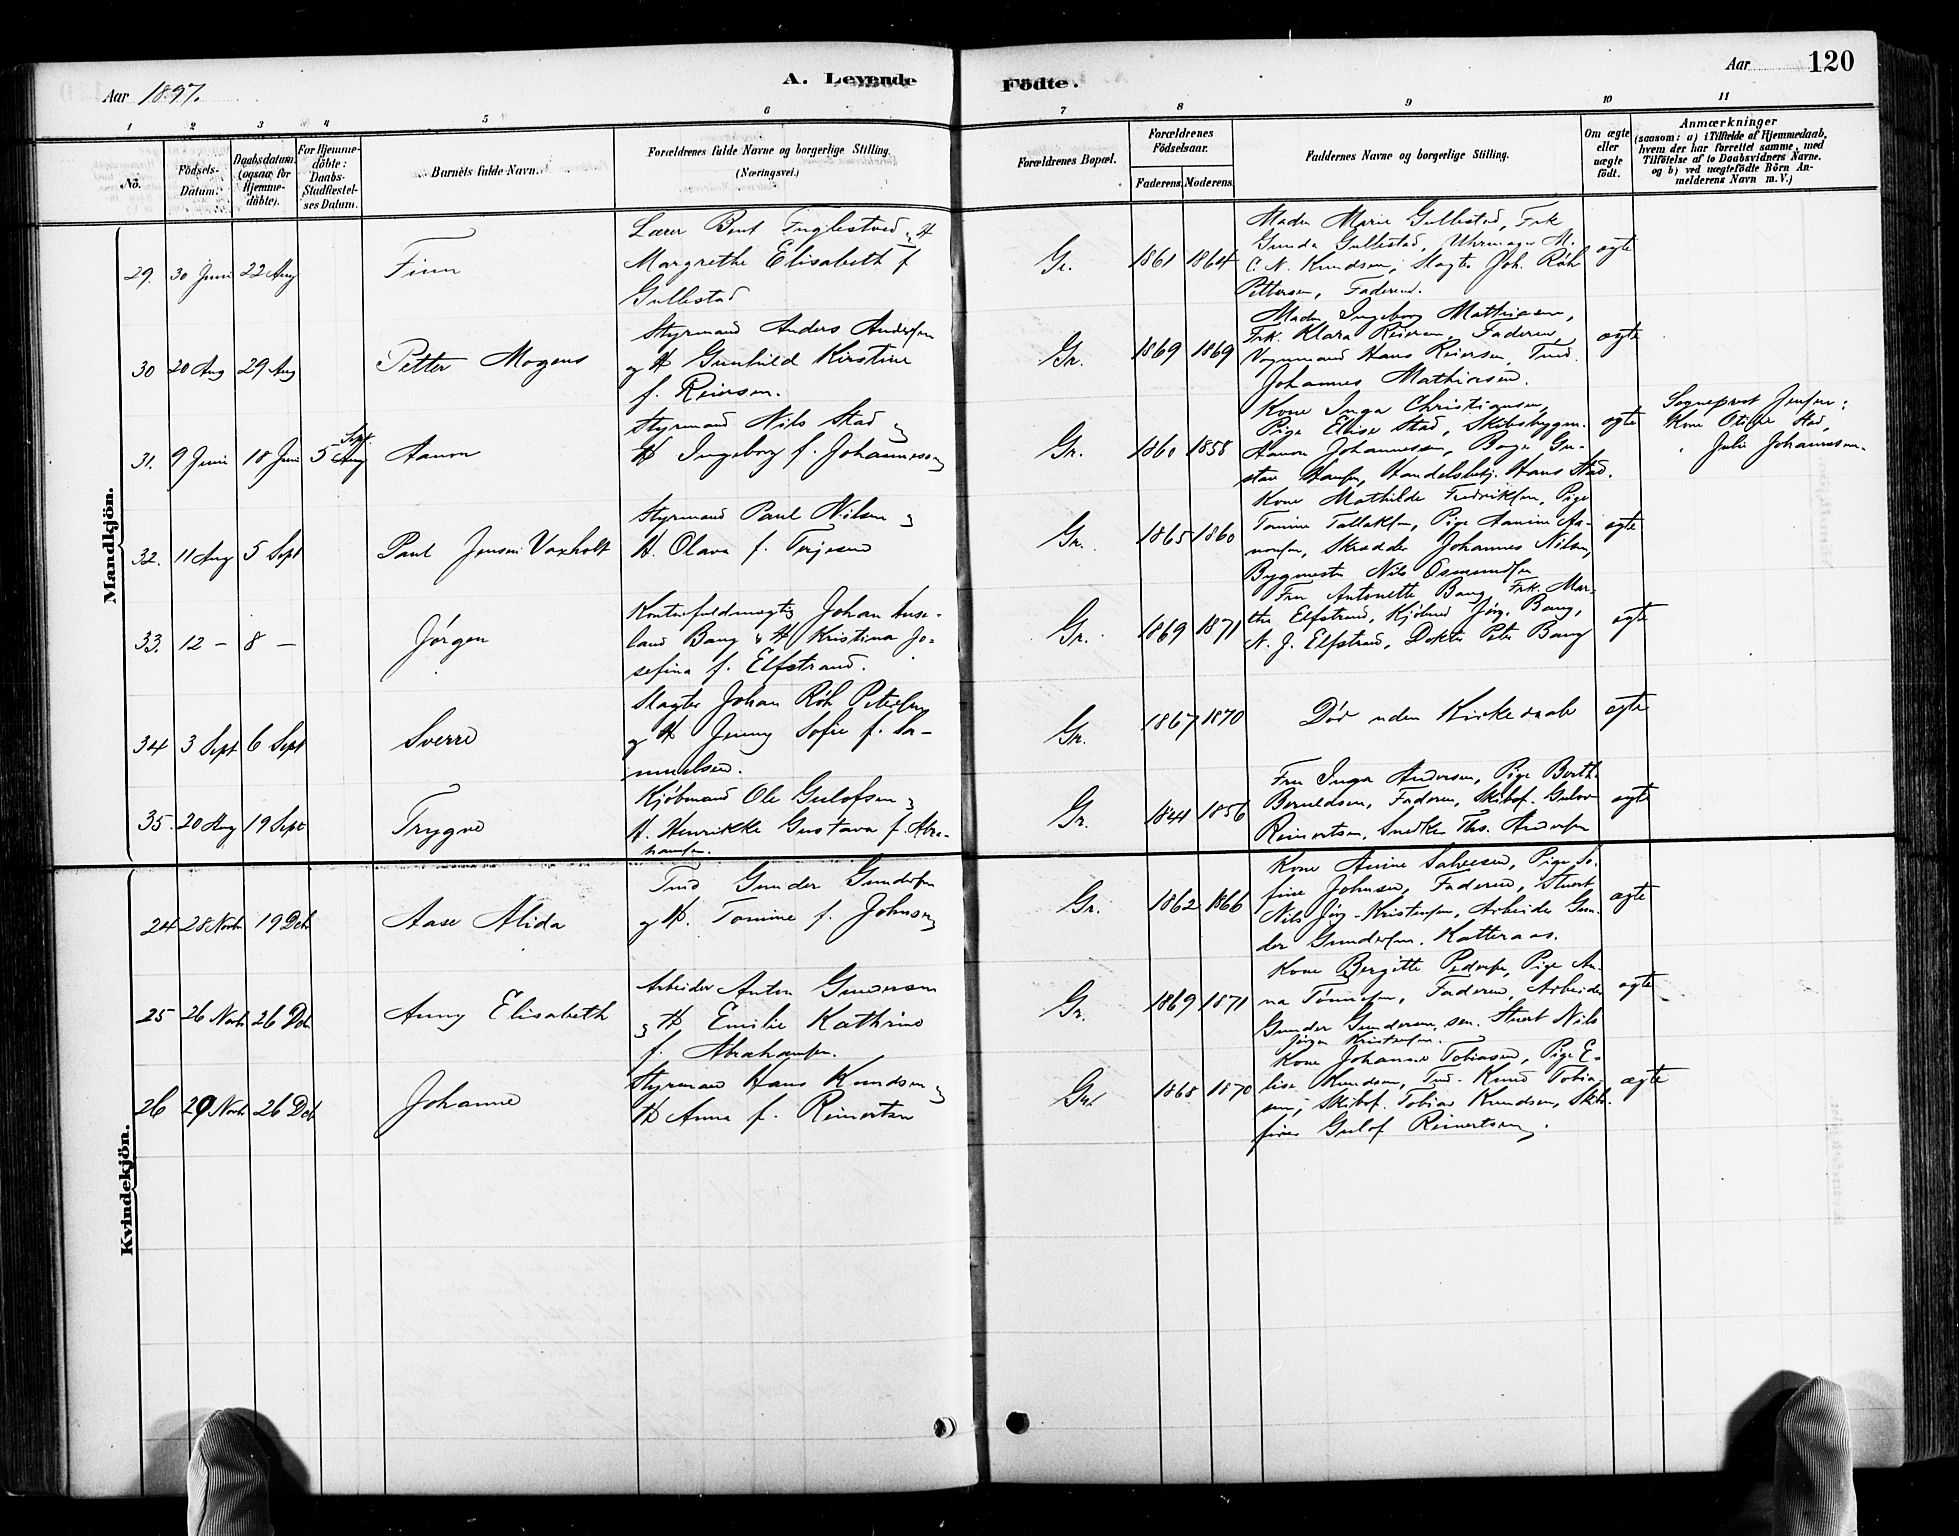 Aar 1897.
A. Levende
Födte.
Aar
120
1 2 3 4 5 6 7 8 9 10 11
No.
Födsels-
Datum.
Daabsdatum
(ogsaa for
Hjemme-
döbte).
For Hjemme-
döbte:
Daabs-
Stadfæstel-
ses Datum.
Barnets fulde Navn.
Forældrenes fulde Navne og borgerlige Stilling.
(Næringsvei.)
Forældrenes Bopæl.
Forældrenes
Födselsaar.
Faderens. Moderens.
Faddernes Navne og borgerlige Stilling.
Om ægte
eller
uægte
födt.
Anmærkninger
(saasom: a) i Tilfælde af Hjemmedaab,
hvem der har forrettet samme, med
Tilföielse af to Daabsvidners Navne.
og b) ved uægtefödte Börn An-
melderens Navn m. V.)
Mandkjön.
29. 30 Juni 22 Aug Finn
Lærer Bent Fuglestved og H
Margrethe Elisabeth f
Gullestad
Gr. 1861 1864
Madm Marie Gullestad, Frk
Gunda Gullestad, Uhrmager M.
C. N. Knudsen, Slagter Joh. Röh
Pettersen, Faderen.
ægte
30 20 Aug 29 Aug Petter Mogens
Styrmand Anders Andersen
og H Gunhild Kirstine
f. Reiersen.
Gr. 1869 1869
Madm Ingeborg Mathiasen,
Frk. Klara Reiersen, Faderen,
Vognmand Hans Reiersen, Tmd.
Johannes Mathiasen.
ægte
31. 9 Juni 18 Juni 5 Sept. Aug Aanon
Styrmand Nils Stad og
H Ingeborg f. Johannesen
Gr. 1860 1858
Kone Inga Christiansen,
Pige Elise Stad, Skibsbygm.
Aanon Johannesen, Bager Gu-
stav Hansen, Handelsbetj. Hans Stad.
ægte
Sogneprest Jensen;
Kone Otilie Stad,
" Julie Johannesen.
32. 11 Aug 5 Sept Paul Jensen Vaxholt
Styrmand Paul Nilsen og
H. Olava f. Terjesen
Gr. 1865 1860
Kone Mathilde Fredriksen, Pige
Tomine Tallaksen, Pige Aanine Aa-
nonsen, Skrædder Johannes Nilsen,
Bygmester Nils Osmundsen
ægte
33. 12 - 8 - Jörgen
Kontorfuldmægtig Johan Aase-
land Bang & H Kristina Jo-
sefina f. Elfstrand.
Gr. 1869 1871
Fru Antonette Bang, Frk. Mar-
tha Elfstrand, Kjöbmd Jörg. Bang,
N. J. Elfstrand, Doktor Peter Bang
ægte
34 3 Sept 6 Sept Sverre
Slagter Johan Röh Petersen
og H Jenny Sofie f. Sa-
muelsen.
Gr. 1867 1870
Död uden Kirkedaab
ægte
35. 20 Aug 19 Sept Trygve
Kjöbmand Ole Gulofsen og
H. Henrikke Gustava f. Abra-
hamsen.
Gr. 1841 1856
Fru Inga Andersen, Pige Berth.
Berntdsen, Faderen, Skibsf. Gulov
Reinertsen, Snedker Ths. Andersen
ægte
Kvindekjön.
24 28 Novb 19 Deb Aase Alida
Tmd Gunder Gundersen
og H. Tomine f. Johnsen
Gr. 1862 1866
Kone Anine Salvesen, Pige Jo-
sine Johnsen, Faderen, Stuert
Nils Jörg. Kristensen, Arbeider Gun-
der Gundersen. Katteraas.
ægte
25 26 Novb 26 Deb Anny Elisabeth
Arbeider Anton Gundersen
og H Emilie Kathrine
f. Abrahamsen.
Gr. 1869 1871
Kone Bergitte Pedersen, Pige An-
na Tönnesen, Faderen, Arbeider
Gunder Gundersen, sen. Stuert Nils
Jörgen Kristensen.
ægte
26 29 Novb 26 Deb Johanne
Styrmand Hans Knudsen og
H Anna f. Reinertsen
Gr. 1868 1870
Kone Johanne Tobiasen, Pige E-
lise Knudsen, Tmd. Knud Tobia-
sen, Skibsf. Tobias Knudsen, Skibs-
förer Gulof Reinertsen.
ægte